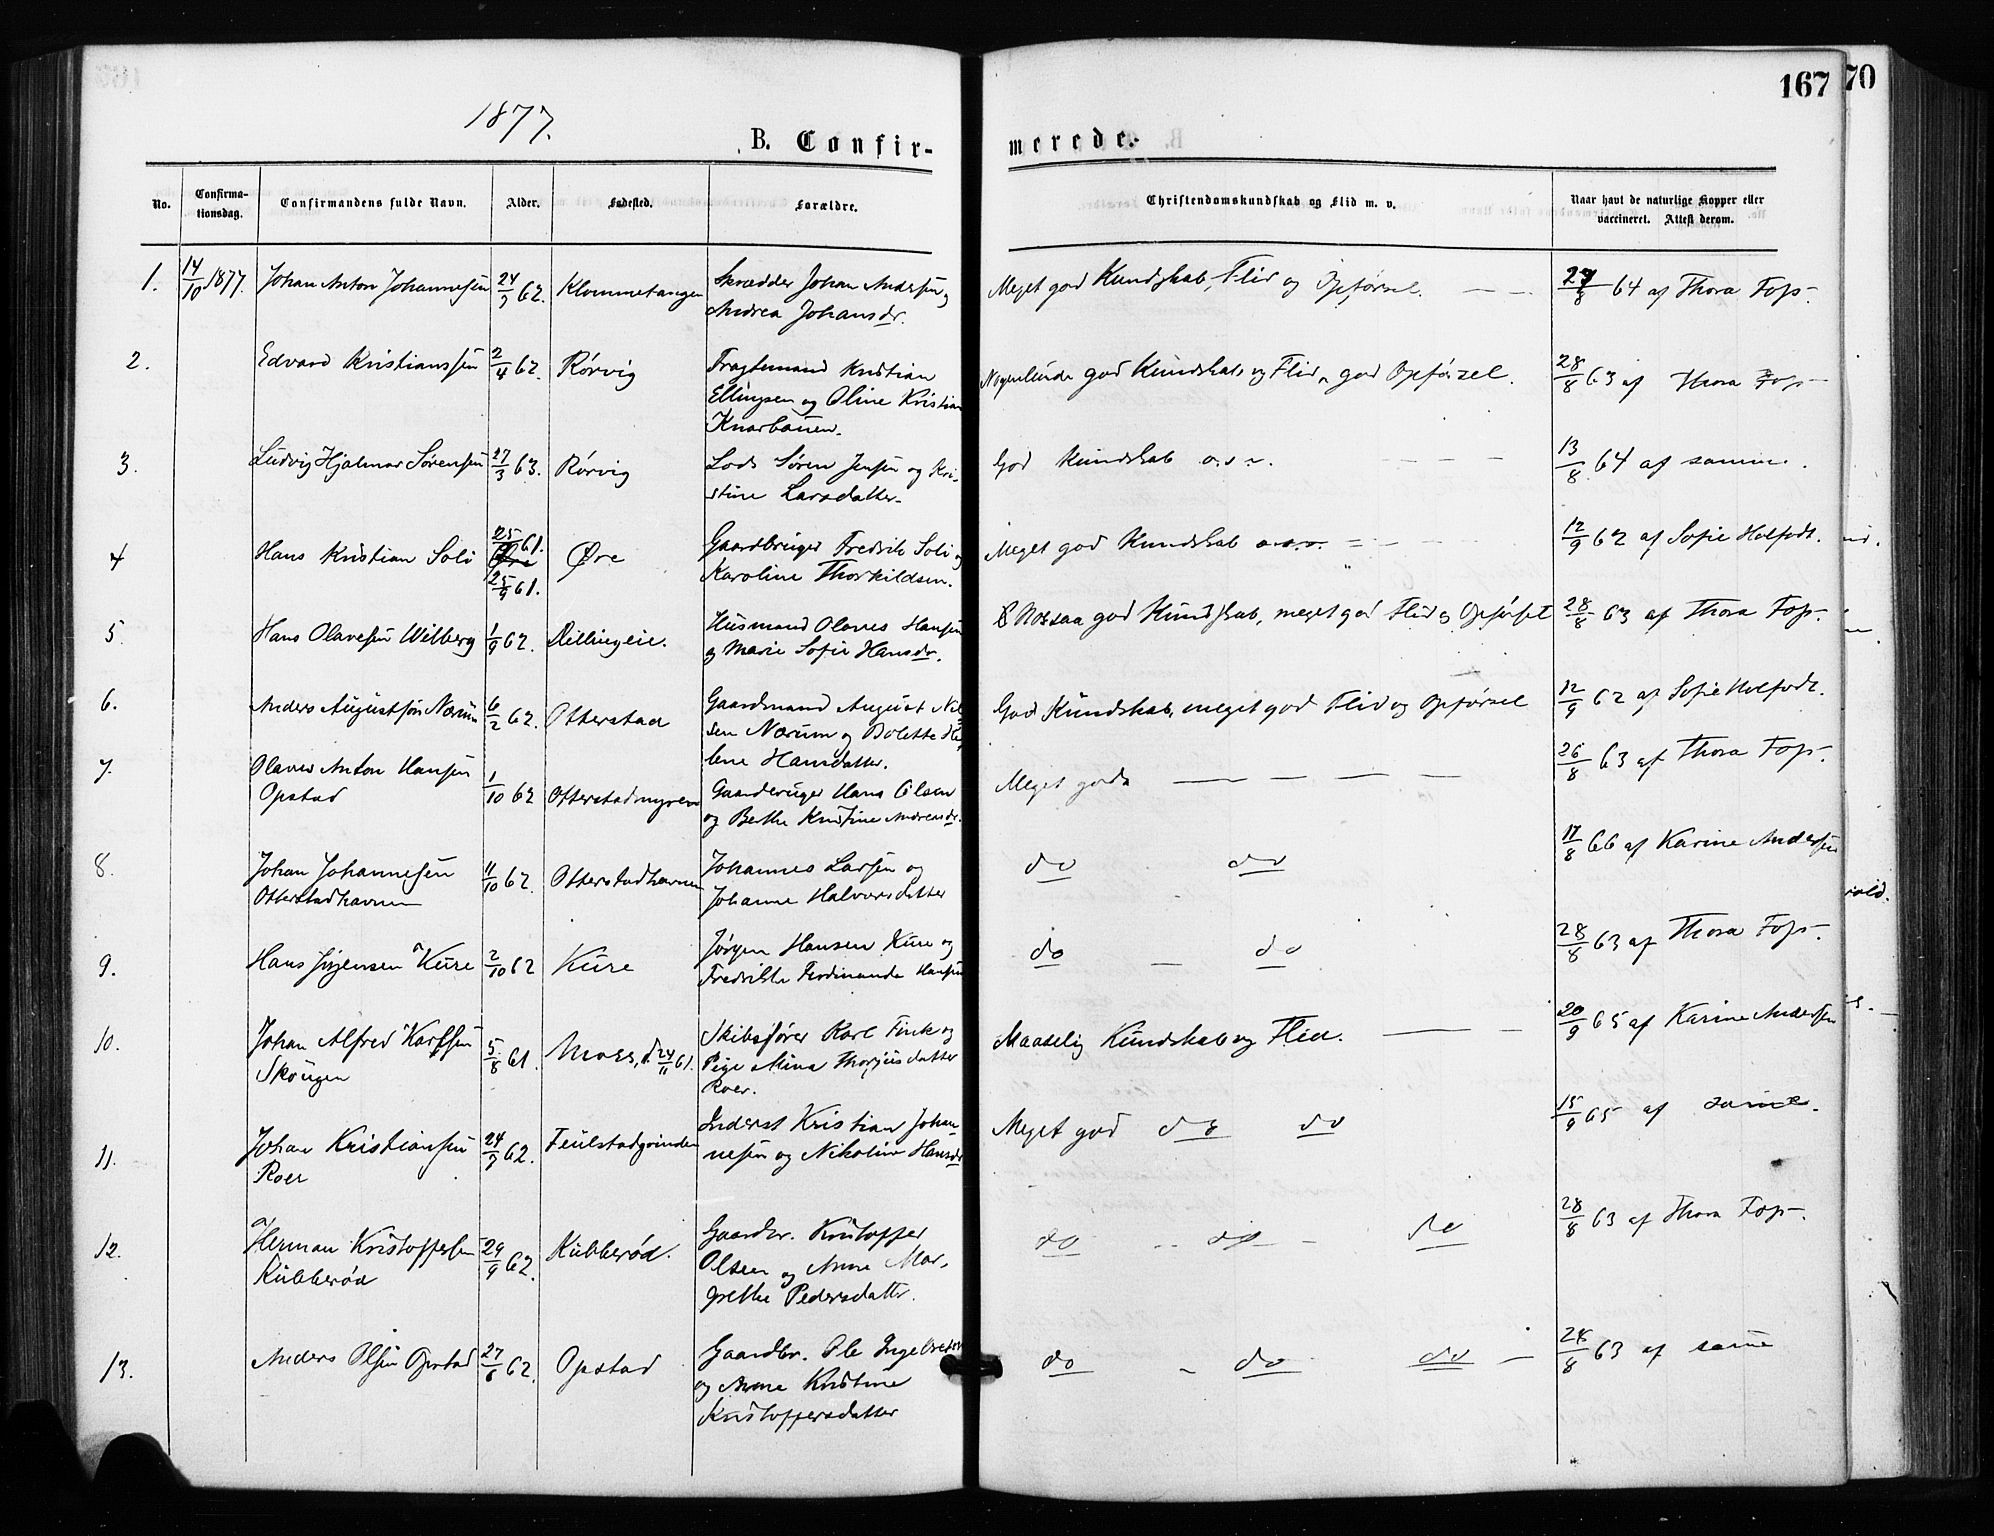 167
70
1877.
B. Confir-
merede.
No.
Confirma-
tionsdag.
Confirmandens fulde Navn.
Alder.
Fødested.
Forældre.
Christendomskundskab og Flid m. v.
Naar havt de naturlige Kopper eller
vaccineret. Attest derom.
1. 14/10 1877. Johan Anton Johannesen 24/3 62. Klommetangen Skrædder Johan Andersen og
Andrea Johansdr.
Meget god Kundskab, Flid og Opførsel. — — 64 af Thora Fops.
2. Edvard Kristianssen 2/4 62. Rørvig Fragtemand Kristian
Ellingsen og Oline Kristian
Nogenlunde god Kundskab og Flid, god Opførsel. 28/8 63 af Thora Fops
3. Ludvig Hjalmar Sørensen 27/3 63. Rørvig Lods Søren Jensen og Kri-
stine Larsdatter.
God Kundskab o.s.v. — — — 13/8 64 af samme.
4 Hans Kristian Soli 25/9 61. Øre Gaardbruger Fredrik Soli og
25/9 61. Karoline Thorkildsen.
Meget god Kundskab o.s.v. 12/9 62 af Sofie Holfodt.
5. Hans Olavesen Wilberg 1/9 62. Rillingeie. Husmand Olaves Hansen
og Marie Sofie Hansdr.
Nossaa god Kundskab, meget god Flid og Opførsel 28/8 63 af Thora Fops.
6. Anders Augustsen Nærum 6/2 62. Otterstad Gaardmand August Nil-
sen Nærum og Bolette He-
lene Hansdatter.
God Kundskab, meget god Flid og Opførsel 12/9 62 af Sofie Holfodt.
7. Olaves Anton Hansen
Opstad 1/10 62 Otterstadmyren Gaardbruger Hans Olsen
og Berthe Kristine Andreasdr.
Meget god — — — — — 26/8 63 af Thora Fops.
8. Johan Johannesen
Otterstadhavnen 11/10 62. Otterstadhavnen Johannes Larsen og
Johanne Halvorsdatter
do do 17/8 66 af Karine Andersen
9. Hans Jørgensen Kure 2/10 62 Kure Jørgen Hansen Kure og
Fredrikke Ferdinande Hansen
do — do 28/8 63 af Thora Fops.
10. Johan Alfred Karlsen
Skougen 5/8 61. Moss, d. 24/11 61. Skibsfører Karl Fink og
Pige Mina Thorjusdatter
Roer.
Maadelig Kundskab og Flid. — — 20/9 65 af Karine Andersen
11. Johan Kristiansen
Roer 24/7 62. Feulstadgrinden Inderst Kristian Johan-
nesen og Nikoline Hansdr
Meget god do do 15/9 65 af samme.
12. Herman Kristoffersen
Kubberød 29/9 62. Kubberød. Gaardbr. Kristoffer
Olsen og Anne Mar-
grethe Pedersdatter.
do do do 28/8 63 af Thora Fops.
13. Anders Olsen Opstad 27/6 62. Opstad Gaardbr. Ole Ingebretsen
og Anne Kristine
Kristoffersdatter
do do do — 28/8 63 af samme